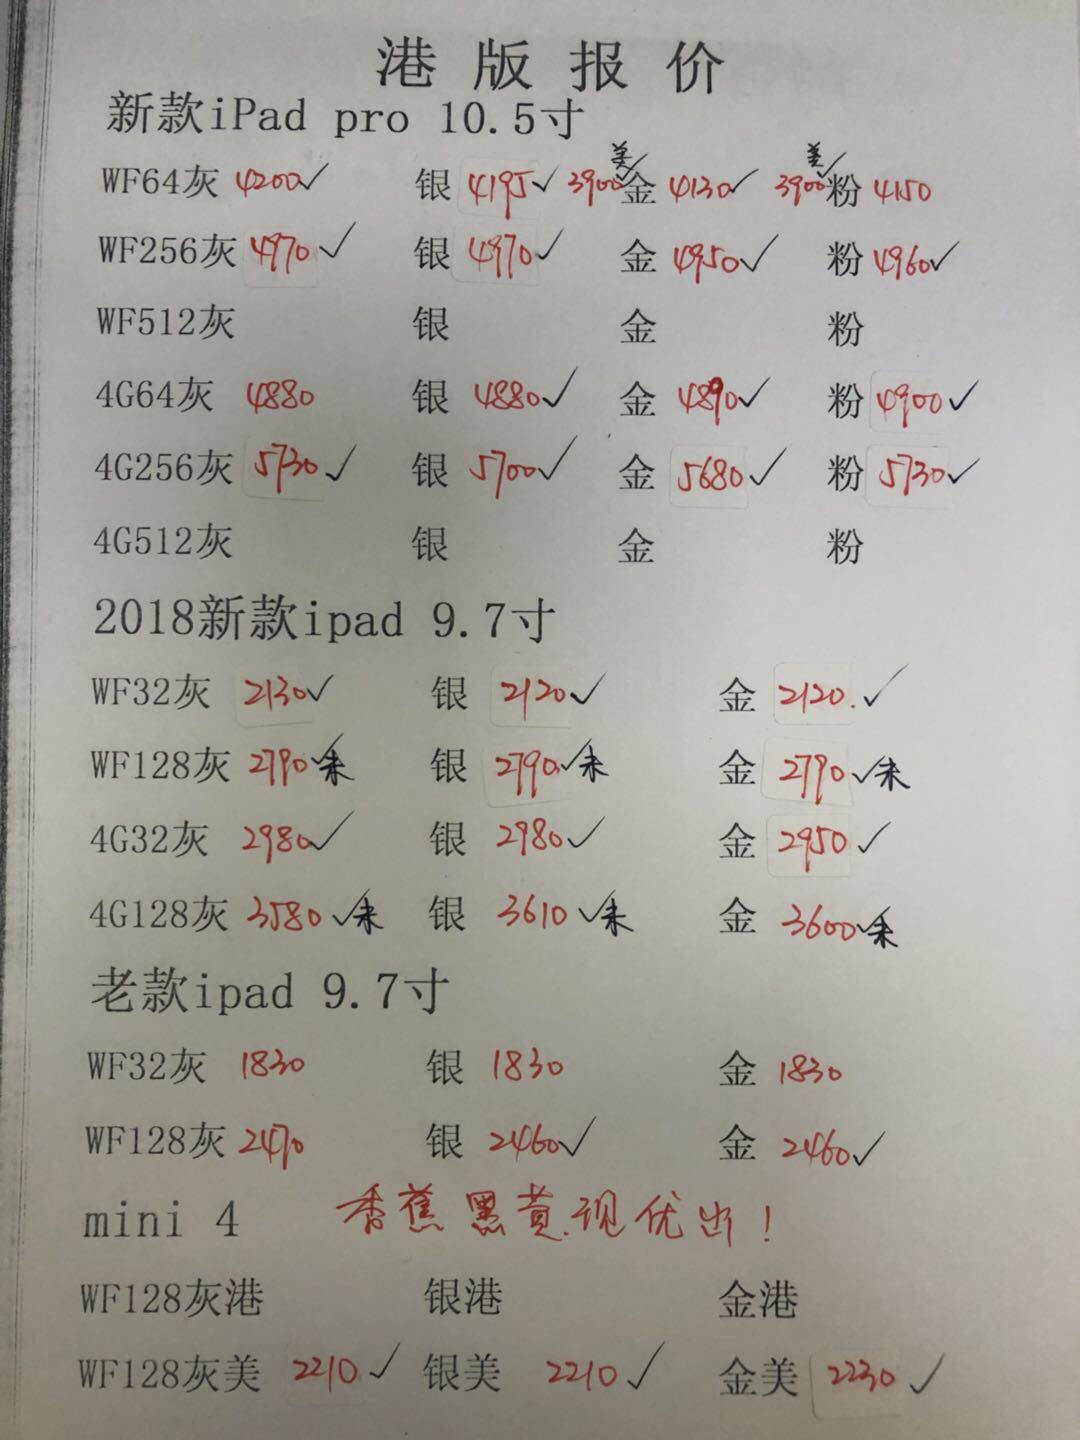 港版报价
新款iPad pro 10.5寸
美✓ 美✓
WF64灰 4200✓ 银 4195✓ 3900 金 4130✓ 3900 粉 4150
WF256灰 4970✓ 银 4970✓ 金 4950✓ 粉 4960✓
WF512灰 银 金 粉
4G64灰 4880 银 4880✓ 金 4890✓ 粉 4900✓
4G256灰 5730✓ 银 5700✓ 金 5680✓ 粉 5730✓
4G512灰 银 金 粉
2018新款ipad 9.7寸
WF32灰 2130✓ 银 2120✓ 金 2120.✓
WF128灰 2790✓未 银 2790✓未 金 2790✓未
4G32灰 2980✓ 银 2980✓ 金 2950✓
4G128灰 3580✓未 银 3610✓未 金 3600✓未
老款ipad 9.7寸
WF32灰 1830 银 1830 金 1830
WF128灰 2470 银 2460✓ 金 2460✓
mini 4 香蕉黑黄.现优出!
WF128灰港 银港 金港
WF128灰美 2210✓ 银美 2210✓ 金美 2230✓